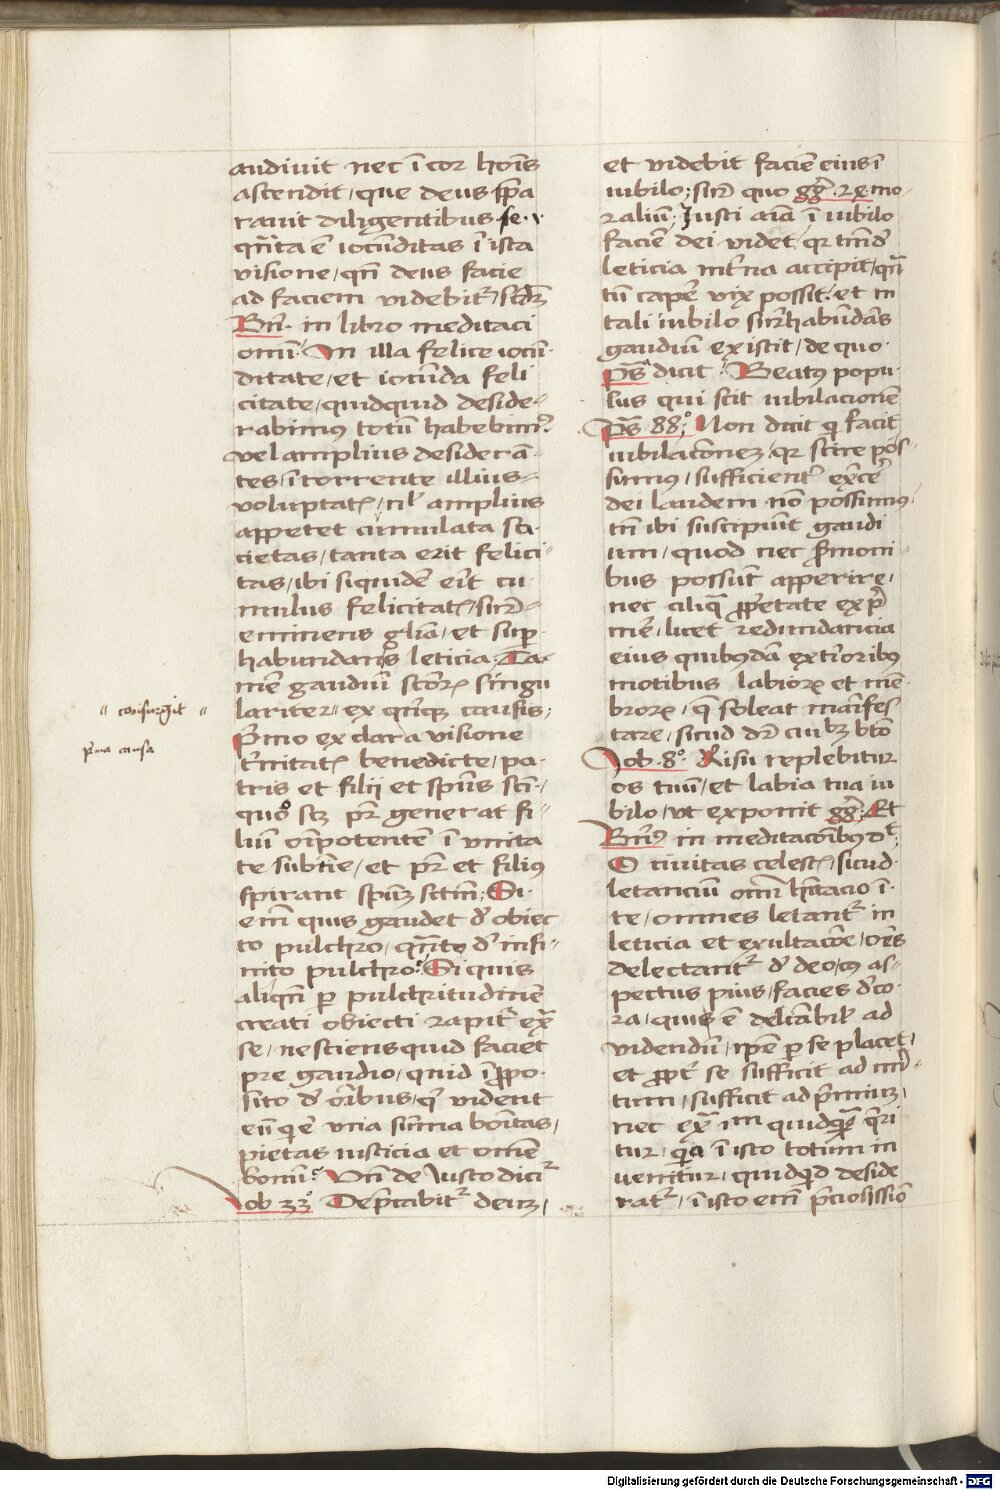 audiuit nec ī cor hoīs
ascendit / que deus p̄pa
rauit diligentibus se .
qn̄ta ē iocūditas ī ista
visione / qn̄ deus facie
ad faciem videbit² / scd̄ȝ
Bn̄. in libro meditaci
onū. In illa felice iocū
ditate / et iocūda feli
citate / quidquid deside-
rabimꝰ totū habebimꝰ.
vel amplius desiderā-
tes / ī torrente illius-
voluptatꝭ / nil amplius
appetet cumulata so-
cietas / tanta erit felici-
tas / ibi siquidē erit cu-
mulus felicitatꝭ / suꝑ-
eminens gl̄ia / et suꝑ-
habundans leticia ; Ta-
mē gaudiū sctōꝝ singu
lariter " ex qīqꝫ causis ;
" consurgit "
p̄ma causa
P̄mo ex clara visione
t̄nitatꝭ benedicte / pa-
tris et filii et sp̄us scī -
quō scꝫ pr̄ generat fi-
liū oīpotentē ī vnita
te substn̄e / et pr̄ et filiꝰ
spirant sp̄ūꝫ sctm̄ ; Si-
em̄ quis gaudet d̄ obiec
to pulchro / qn̄to d̄ infi-
nito pulchro. Si quis
aliqn̄ ꝑ pulchritudinē
creati obiecti rapit² ex̄
se / nesciens quid faciet
pre gaudio / quid ī ꝓpo-
sito d̄ oībus / qͥ vident
eū qͥ ē vna sūma bōitas /
pietas iusticia et omē
bonū. Vn̄ de Iusto dicit²
Iob 33°. Dep̄cabit² deuꝫ /
et videbit faciē eius ī
iubilo ; sup̄ quo gg̅ . 28 mo-
raliū . Iusti aīa ī iubilo
faciē dei videt / qꝛ tm̄ d̄
leticia int̄na accipit / qn̄
tū cape̅ vix possit . et in
tali iubilo suꝑhabūdās
gaudiū existit / de quo
ps̄ dicit . Beatꝰ popu-
lus qui scit iubilacionē
Ps̄ 88° ; Non dicit qͥ facit
iubilacōneꝫ / qꝛ scire pos-
sumus / sufficient² ex̄cē
dei laudem nō possumꝰ /
tn̄ ibi suscipiūt gaudi
um / quod nec s̄moni-
bus possūt apperire /
nec aliqͣ ꝓp̄etate exp̄-
mē̄ / licet redundancia
eius quibꝰdā ext̄ioribꝰ
motibus labioꝝ et mē-
broꝝ / qͥ soleat manifes
tare / sicud dr̄ cuibꝫ btō
Iob . 8°. Risu replebitur
os tuū / et labia tua iu
bilo / vt exponit gg̅ ; Et
Bn̄ꝰ in meditacōibꝰ dt̄ ;
O ciuitas celestꝭ / sicud
letanciū om̄ h̄itacio ī-
te / omnes letant² in
leticia et exultacōe / oēs
delectant² d̄ deo / cꝰ as-
pectus pius / facies d̄co-
ra / quis ē delcābilꝭ ad
videndū / ip̄e ꝑ se placet /
et ꝓpt̄ se sufficit ad m̄i-
tum / sufficit ad p̄miuꝫ /
nec ex̄ im̄ quidqͣꝫ qͣri
tur / qꝛ ī isto totum in
uenitur / quidqͥd deside
rat² / ī isto em̄ p̄ciosissīo
Digitalisierung gefördert durch die Deutsche Forschungsgemeinschaft - DFG